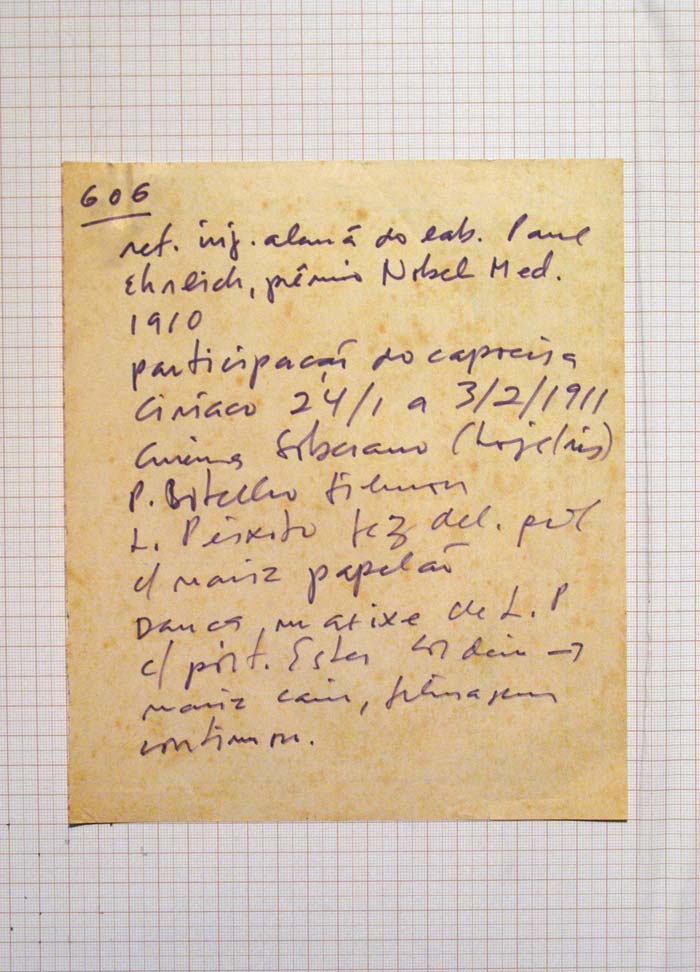 606
ref. inj. alemã do lab. Paul
Ehrlich, prêmio Nobel Med.
1910
participação do capoeira
Ciríaco 24/1 a 3/2/1911
Cinema Soberano (hoje Íris)
P. Botelho filmou
L. Peixoto fez del. pol
c/ nariz papelão
Dança, maxixe de L. P
c/ port. Ester →
nariz caiu, filmagem
continuou.